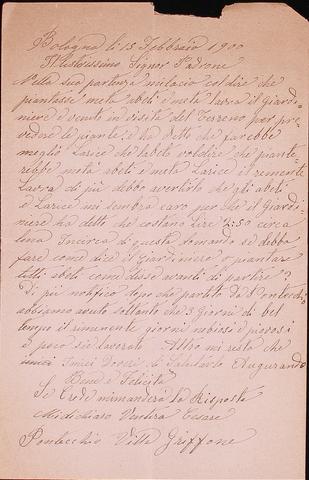 Bologna li 15 Febbraio 1900
Illustrissimo Signor Padrone
Nella sua partenza milacio coldire che
piantasse metà abeti e metà larice il Giardi-
niere è venuto in visita del Terreno per pre-
vedere le piante, e ha detto che farebbe
meglio Larice che labete voldire che piante-
rebbe metà abeti e metà Larice il remente
Laura di più debbo avertirlo che gli abeti
e Larice mi sembra caro per che il Giardi-
niere ha detto che costano Lire 2:50 circa
luna Incerca di questa domando se debba
fare come dice il Giardiniere o piantar
tutti abeti come disse avanti di partire?
Di più notifico dopo che partito da Pontecchio
abbiamo avuto soltanto che 3 Giorni di bel
tempo il rimenente giorni nebiosi e piovosi
e poco si è lavorato. Altro mi resta che
i miei Doveri di Salutarlo Augurando
Bene e Felicità
Se Crede mimanderà La Risposta
Midichiaro Ventura Cesare
Pontecchio Villa Griffone